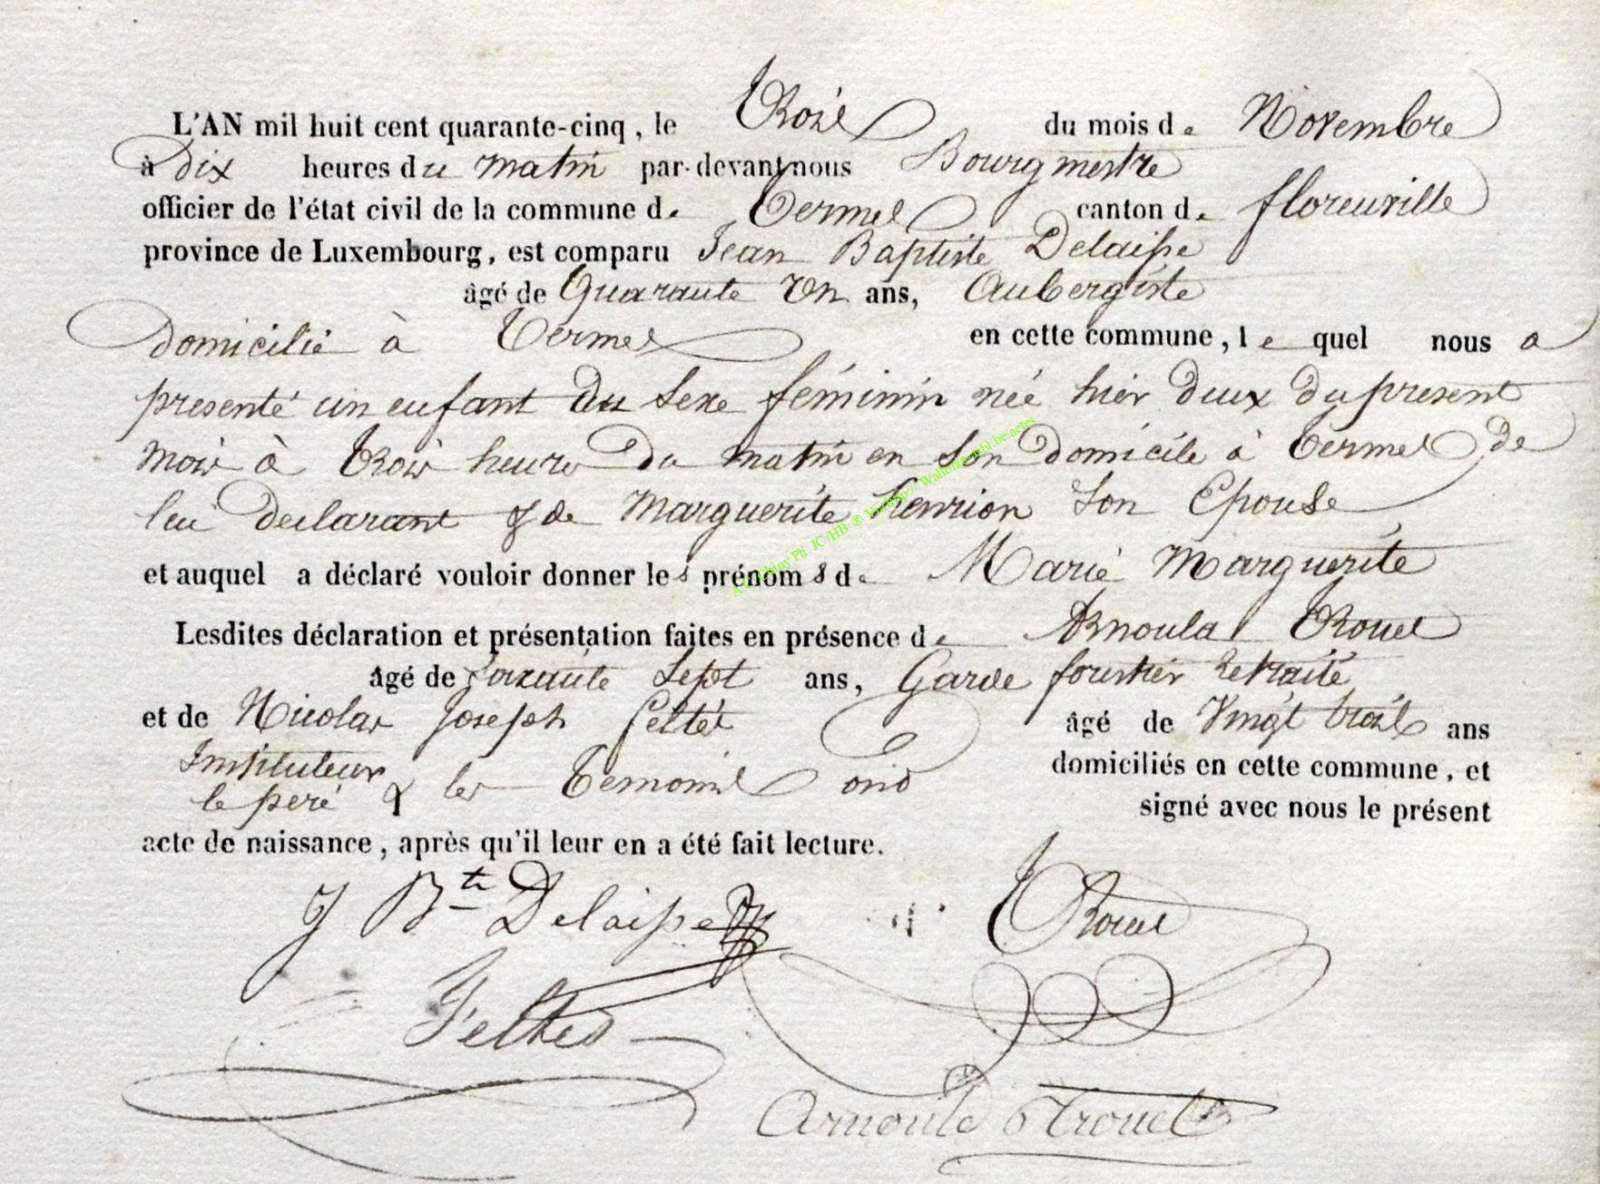 L'AN mil huit cent quarante-cinq, le Trois du mois de Novembre
à Dix heures du matin par-devant nous Bourgmestre
officier de l'état civil de la commune de Termes canton de florenville
province de Luxembourg, est comparu Jean Baptiste Delaisse
âgé de Quarante Un ans, Aubergiste
domicilié à Termes en cette commune, lequel nous a
presenté un enfant du sexe féminin née hier deux du present
mois à trois heures du matin en son domicile à Termes de
lui declarant & de Marguerite henrion son Epouse
et auquel a déclaré vouloir donner les prénoms de Marie Marguerite
Lesdites déclaration et présentation faites en présence de Arnould Trouet
âgé de soixante sept ans, Garde forestier retraité
et de Nicolas Joseph feltés âgé de Vingt trois ans
Instituteur domiciliés en cette commune, et
le père & les temoins ond signé avec nous le présent
acte de naissance, après qu'il leur en a été fait lecture.
J Bte Delaisse
Trouet
Feltes
Arnould Trouet